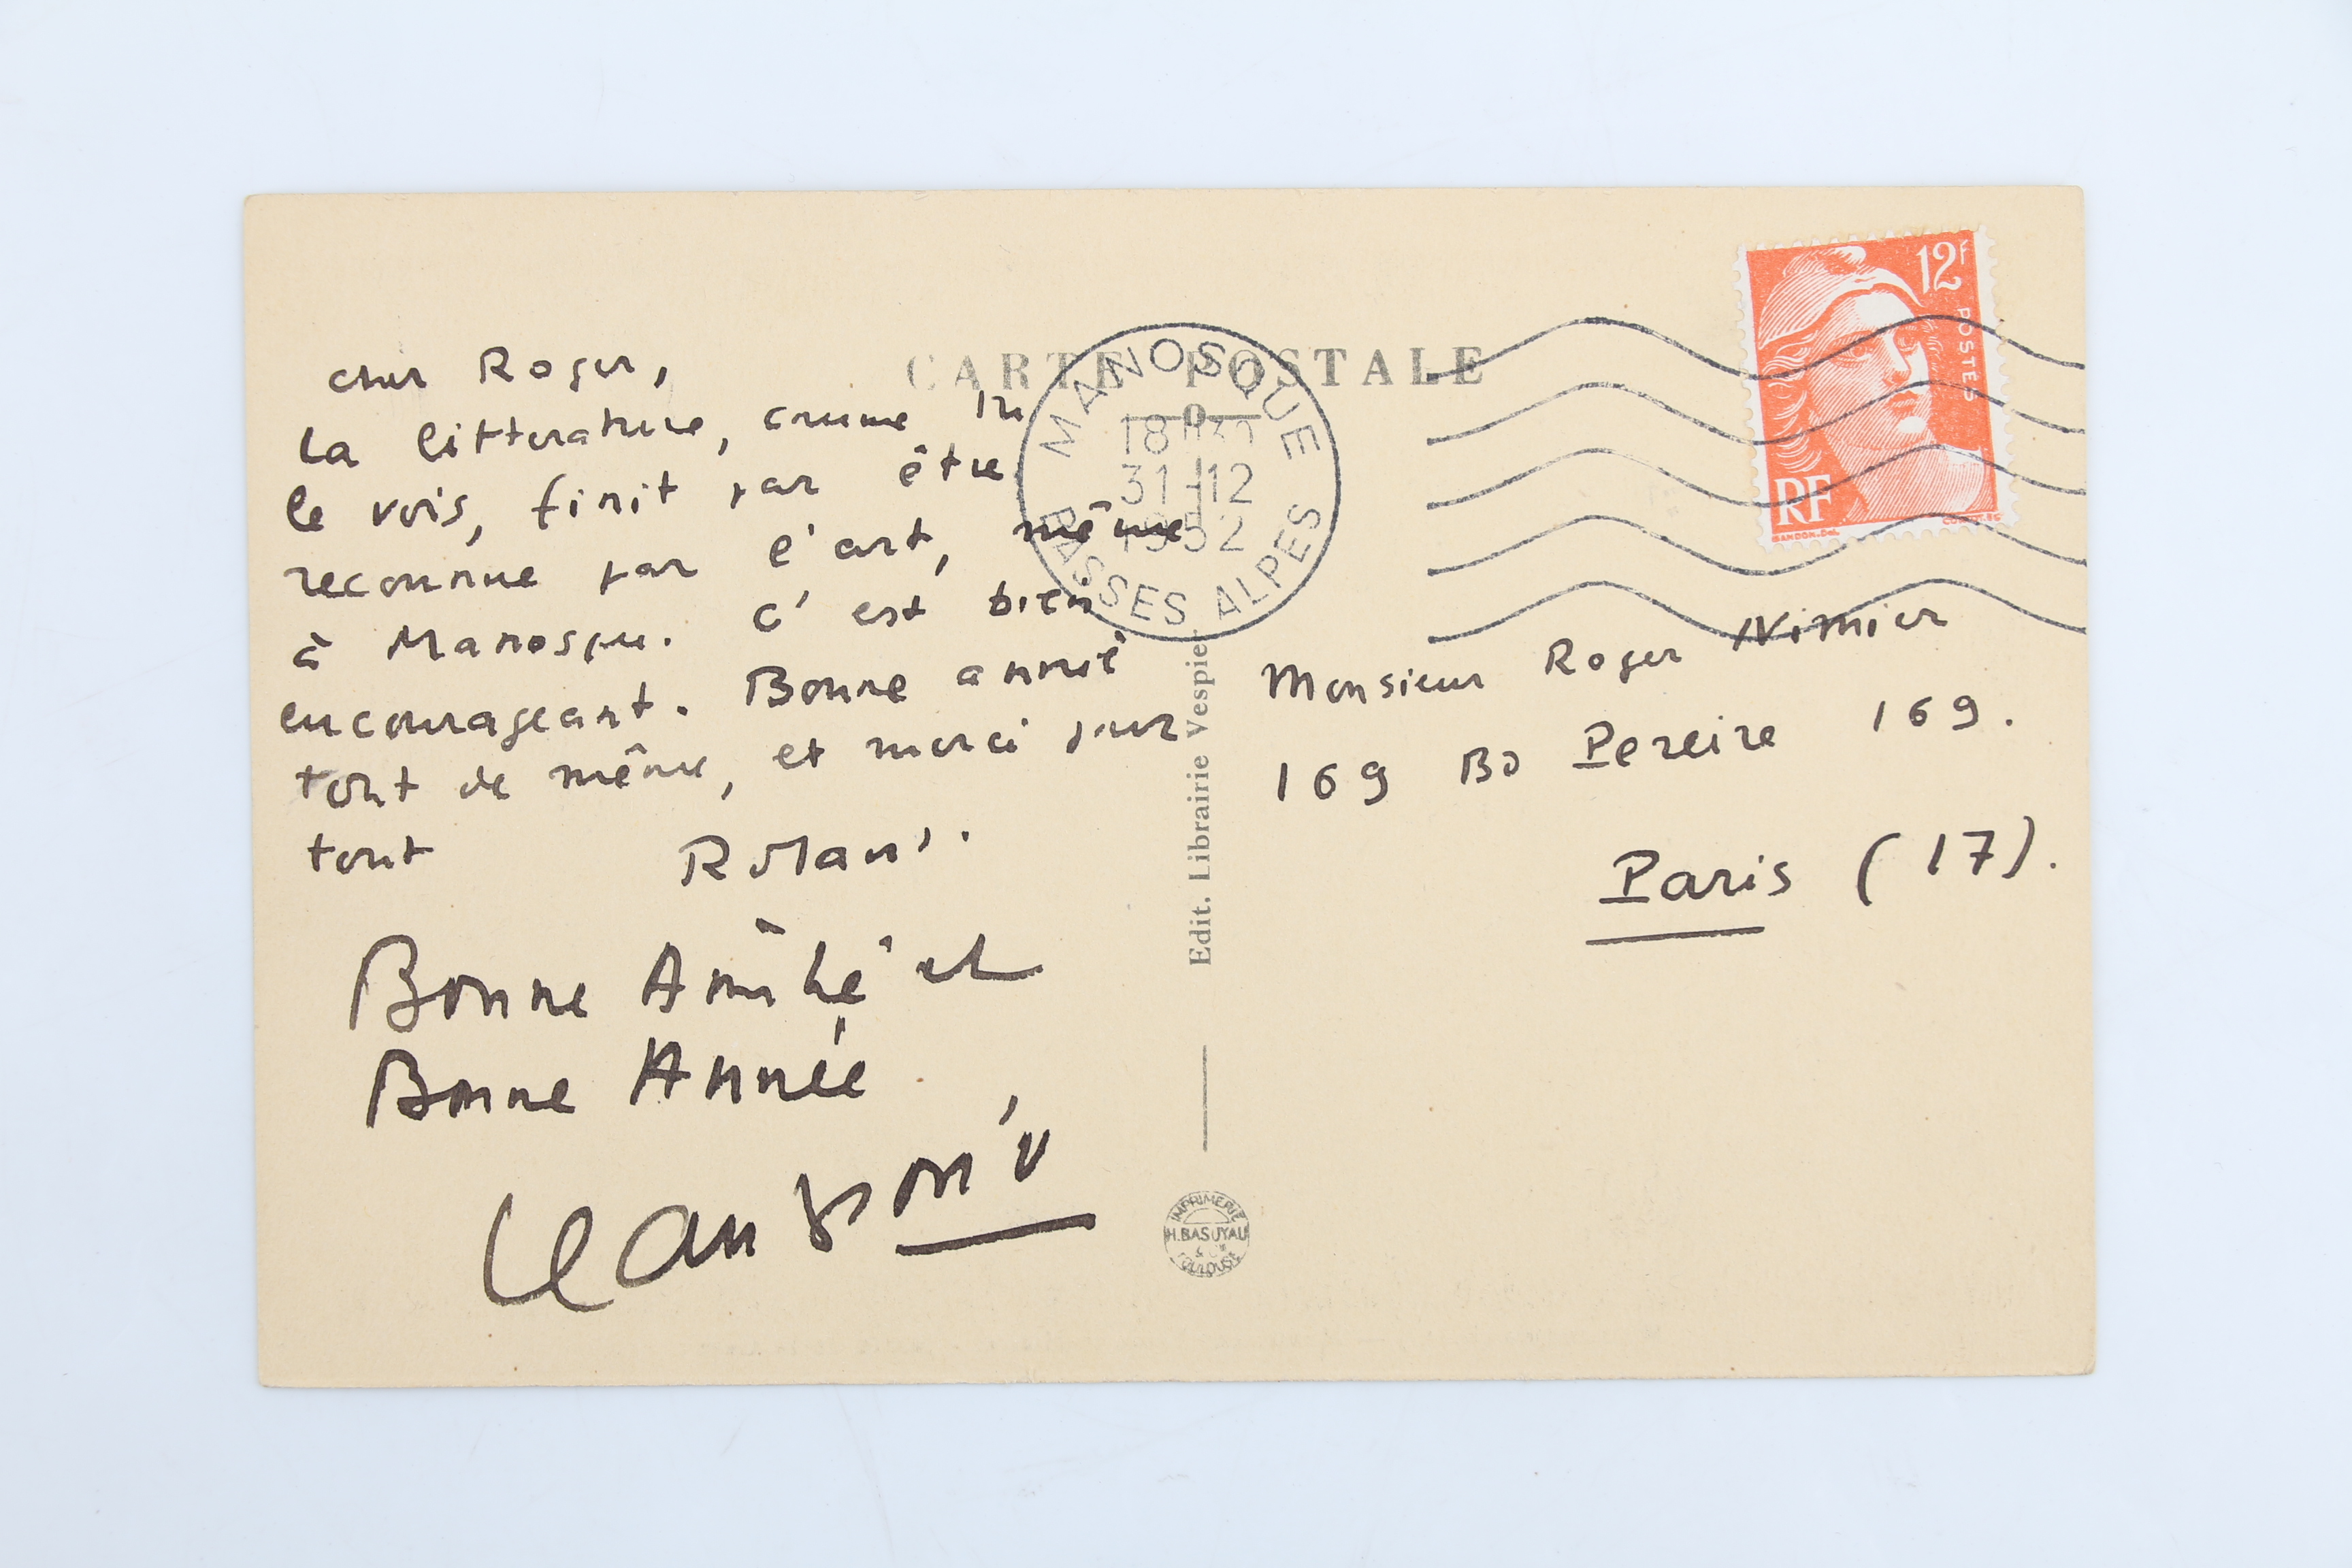 cher Roger,
la littérature, comme tu
le vois, finit par être
reconnue par l'art, même
à Manosque. C'est bien
encourageant. Bonne année
tout de même, et merci pour
tout
Roland.
Bonne Amitié et
Bonne Année
Jean Giono
CARTE POSTALE
MANOSQUE
18 H 30
31-12
1952
BASSES ALPES
12F
POSTES
RF
GANDON. DEL.
Monsieur Roger Nimier
169 Bd Pereire 169.
Paris (17).
Edit. Librairie Vespier
IMPRIMERIE
H. BASUYAU
TOULOUSE